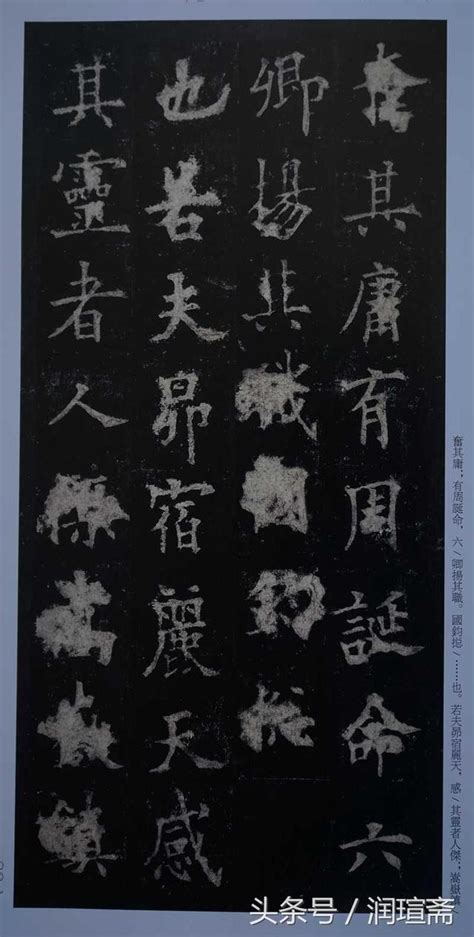 奮其庸有周誕命六
卿揚其職國鈞
也若夫昴宿麗天感
其靈者人傑嵩嶽鎮
奮其庸;有周誕命,六/卿揚其職。國鈞/……也。若夫昴宿麗天,感/其靈者人傑;嵩嶽鎮
头条号 / 润瑄斋